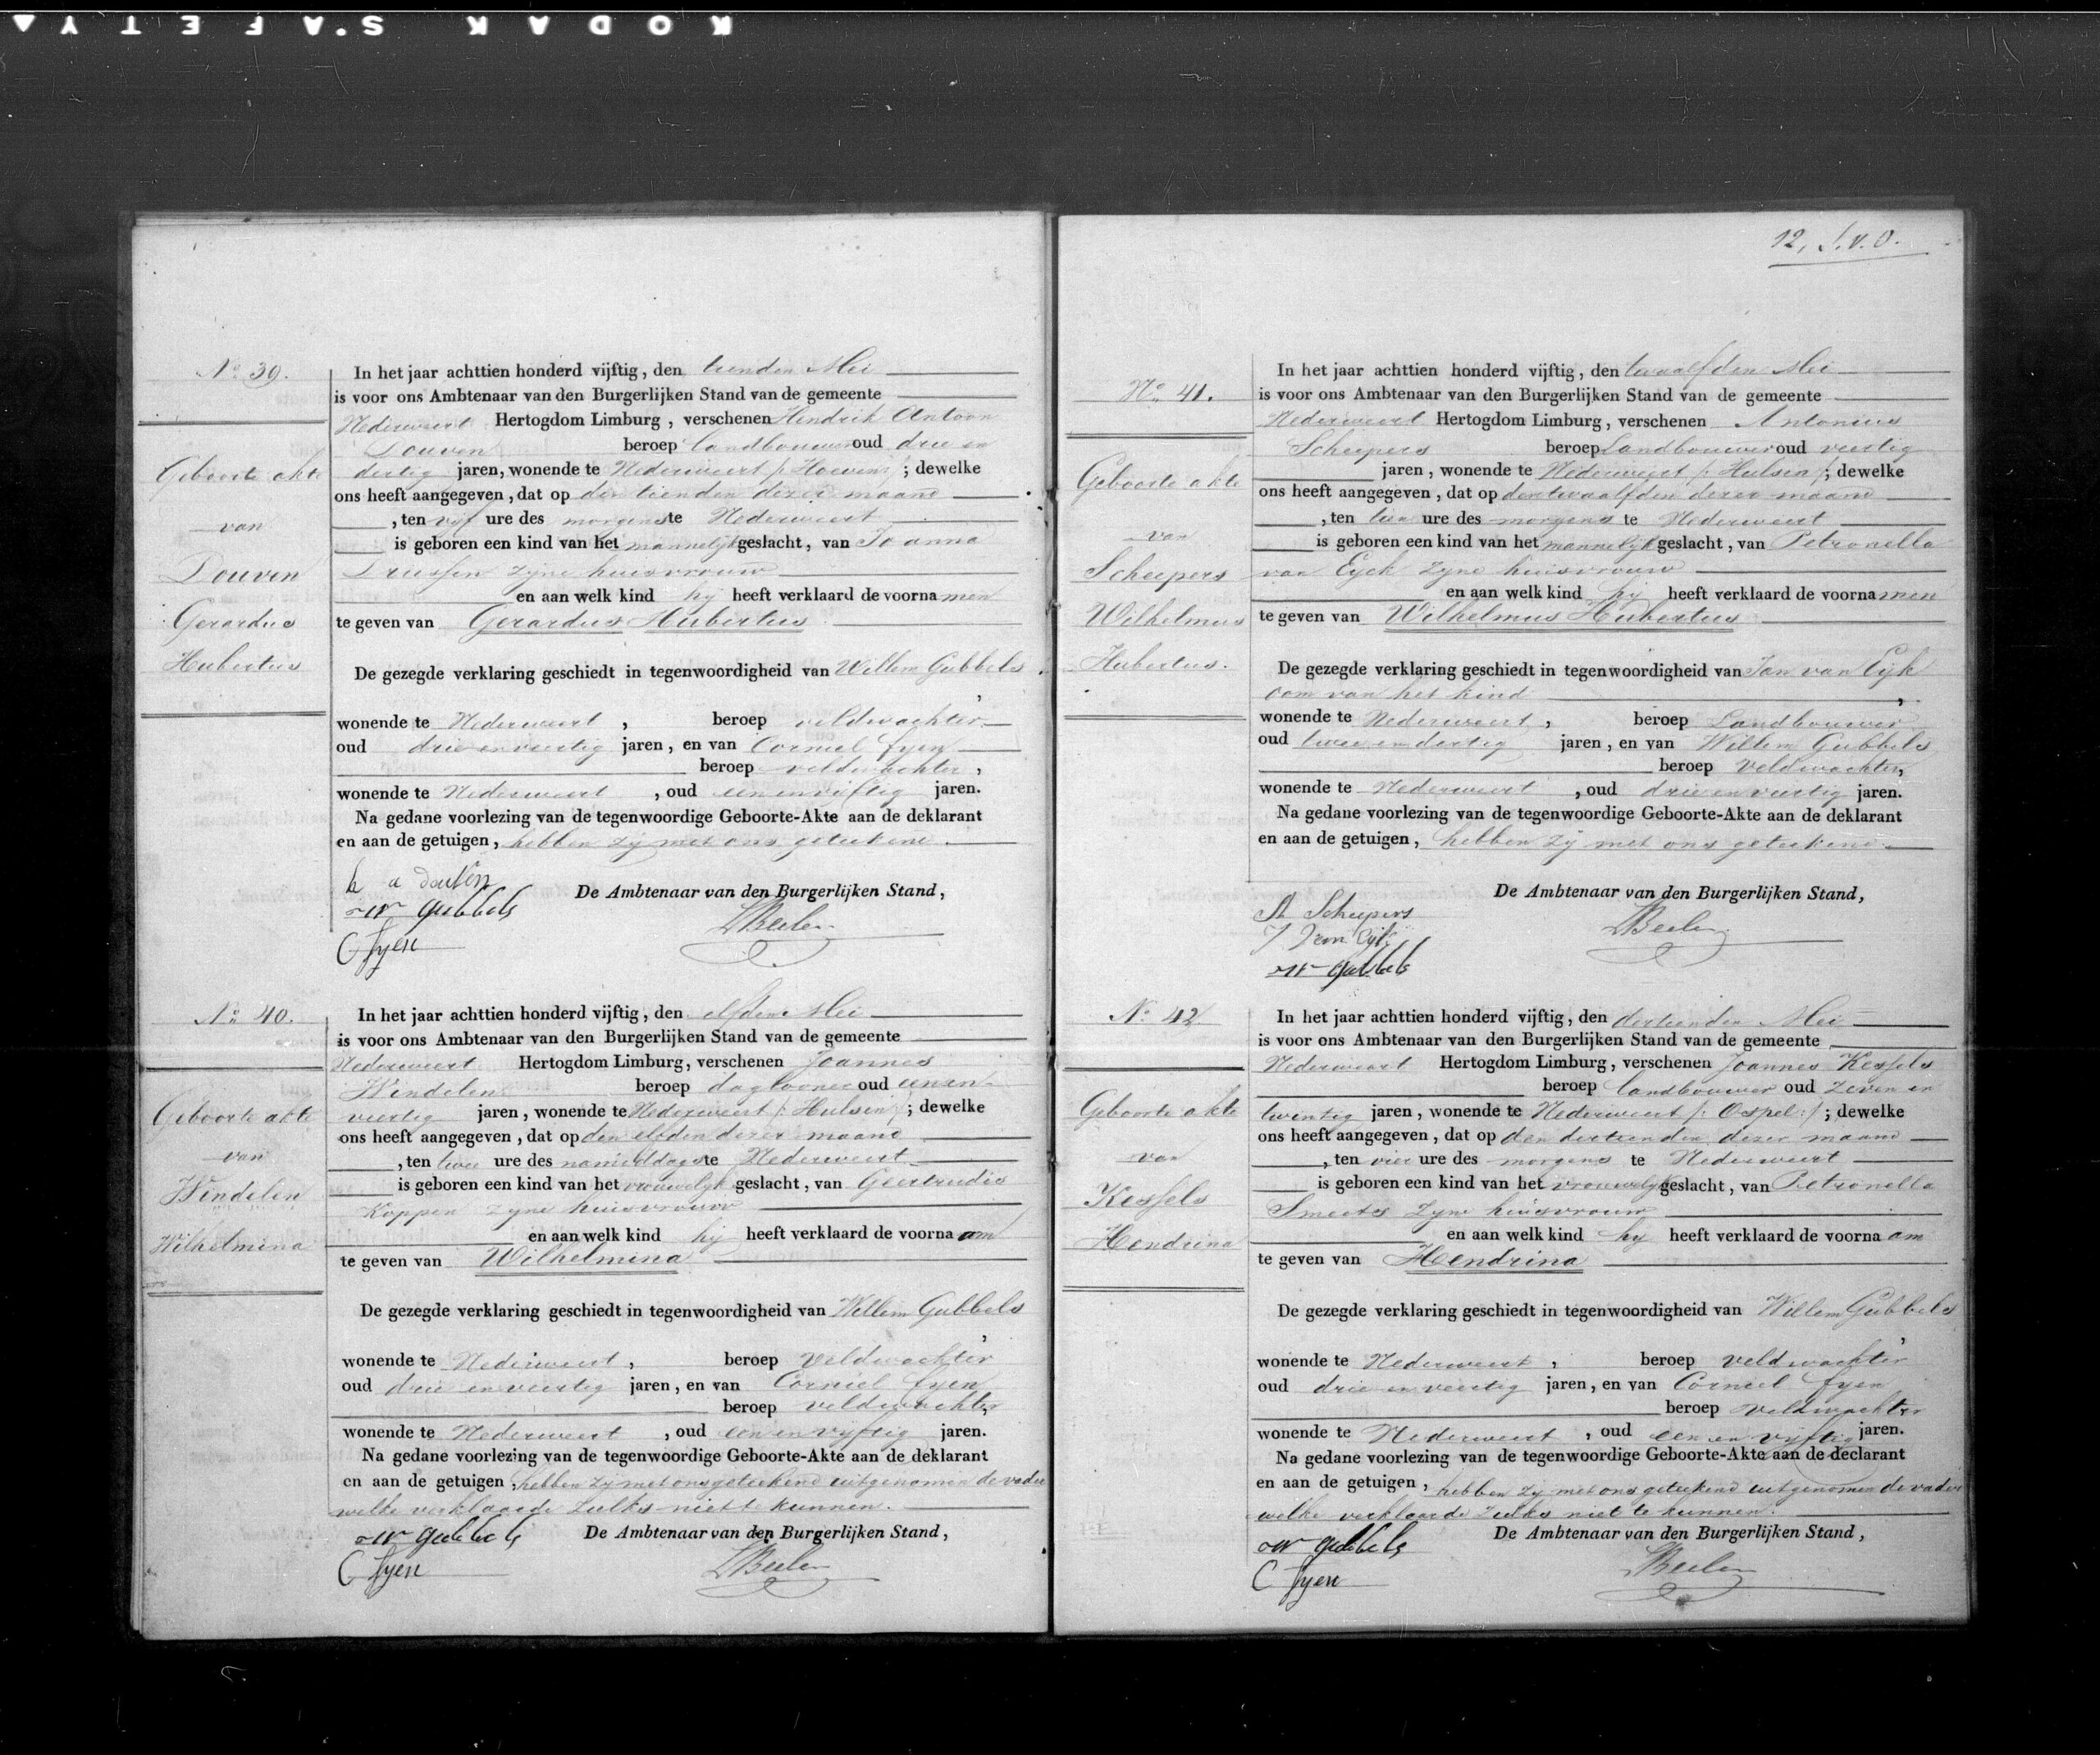 KODAK SAFETY
No 39.
Geboorte akte
van
Douven
Gerardus
Hubertus
In het jaar achttien honderd vijftig, den tienden Mei
is voor ons Ambtenaar van den Burgerlijken Stand van de gemeente
Nederweert Hertogdom Limburg, verschenen Hendrik Antoon
Douven beroep landbouwer oud drie en
dertig jaren, wonende te Nederweert /: Hoeven :/; dewelke
ons heeft aangegeven, dat op den tienden dezer maand
, ten vijf ure des morgens te Nederweert
is geboren een kind van het mannelijk geslacht, van Joanna
zyne huisvrouw
en aan welk kind hij heeft verklaard de voornamen
te geven van Gerardus Hubertus
De gezegde verklaring geschiedt in tegenwoordigheid van Willem Gubbels
,
wonende te Nederweert, beroep veldwachter
oud drie en veertig jaren, en van Corneel Fyen
beroep veldwachter,
wonende te Nederweert, oud een en vijftig jaren.
Na gedane voorlezing van de tegenwoordige Geboorte-Akte aan de deklarant
en aan de getuigen, hebben zij met ons geteekend.
De Ambtenaar van den Burgerlijken Stand,
h a douven
w gubbels
C fyen
No 40.
Geboorte akte
van
Windelen
Wilhelmina
In het jaar achttien honderd vijftig, den elfden Mei
is voor ons Ambtenaar van den Burgerlijken Stand van de gemeente
Nederweert Hertogdom Limburg, verschenen Joannes
Windelen beroep daglooner oud een en
veertig jaren, wonende te Nederweert /: Hulsen :/; dewelke
ons heeft aangegeven, dat op den elfden dezer maand
, ten twee ure des namiddags te Nederweert
is geboren een kind van het vrouwelijk geslacht, van Geertrudis
Koppen zyne huisvrouw
en aan welk kind hij heeft verklaard de voornaam
te geven van Wilhelmina
De gezegde verklaring geschiedt in tegenwoordigheid van Willem Gubbels
,
wonende te Nederweert, beroep veldwachter
oud drie en veertig jaren, en van Corneel Fyen
beroep veldwachter,
wonende te Nederweert, oud een en vyftig jaren.
Na gedane voorlezing van de tegenwoordige Geboorte-Akte aan de deklarant
en aan de getuigen, hebben zij met ons geteekend uitgenomen de vader
welke verklaarde zulks niet te kunnen.
De Ambtenaar van den Burgerlijken Stand,
w gubbels
C fyen
12, S.v.O.
No 41.
Geboorte akte
van
Scheepers
Wilhelmus
Hubertus.
In het jaar achttien honderd vijftig, den twaalfden Mei
is voor ons Ambtenaar van den Burgerlijken Stand van de gemeente
Nederweert Hertogdom Limburg, verschenen Antonius
Scheepers beroep Landbouwer oud veertig
jaren, wonende te Nederweert /: Hulsen :/; dewelke
ons heeft aangegeven, dat op den twaalfden dezer maand
, ten tien ure des morgens te Nederweert
is geboren een kind van het mannelijk geslacht, van Petronella
van Eyck zyne huisvrouw
en aan welk kind hij heeft verklaard de voornamen
te geven van Wilhelmus Hubertus
De gezegde verklaring geschiedt in tegenwoordigheid van Jan van Eijk
oom van het kind,
wonende te Nederweert, beroep Landbouwer
oud twee en dertig jaren, en van Willem Gubbels
beroep Veldwachter,
wonende te Nederweert, oud drie en veertig jaren.
Na gedane voorlezing van de tegenwoordige Geboorte-Akte aan de deklarant
en aan de getuigen, hebben zij met ons geteekend.
De Ambtenaar van den Burgerlijken Stand,
A Scheepers
J van Eijk
w gubbels
No 42
Geboorte akte
van
Kessels
Hendrina
In het jaar achttien honderd vijftig, den dertienden Mei
is voor ons Ambtenaar van den Burgerlijken Stand van de gemeente
Nederweert Hertogdom Limburg, verschenen Joannes Kessels
beroep landbouwer oud zeven en
twintig jaren, wonende te Nederweert /: Ospel :/; dewelke
ons heeft aangegeven, dat op den dertienden dezer maand
, ten vier ure des morgens te Nederweert
is geboren een kind van het vrouwelijk geslacht, van Petronella
Smeets zyne huisvrouw
en aan welk kind hy heeft verklaard de voornaam
te geven van Hendrina
De gezegde verklaring geschiedt in tegenwoordigheid van Willem Gubbels
,
wonende te Nederweert, beroep veldwachter
oud drie en veertig jaren, en van Corneel Fyen
beroep veldwachter
wonende te Nederweert, oud een en vijftig jaren.
Na gedane voorlezing van de tegenwoordige Geboorte-Akte aan de declarant
en aan de getuigen, hebben zy met ons geteekend uitgenomen de vader
welke verklaarde zulks niet te kunnen.
De Ambtenaar van den Burgerlijken Stand,
w gubbels
C fyen